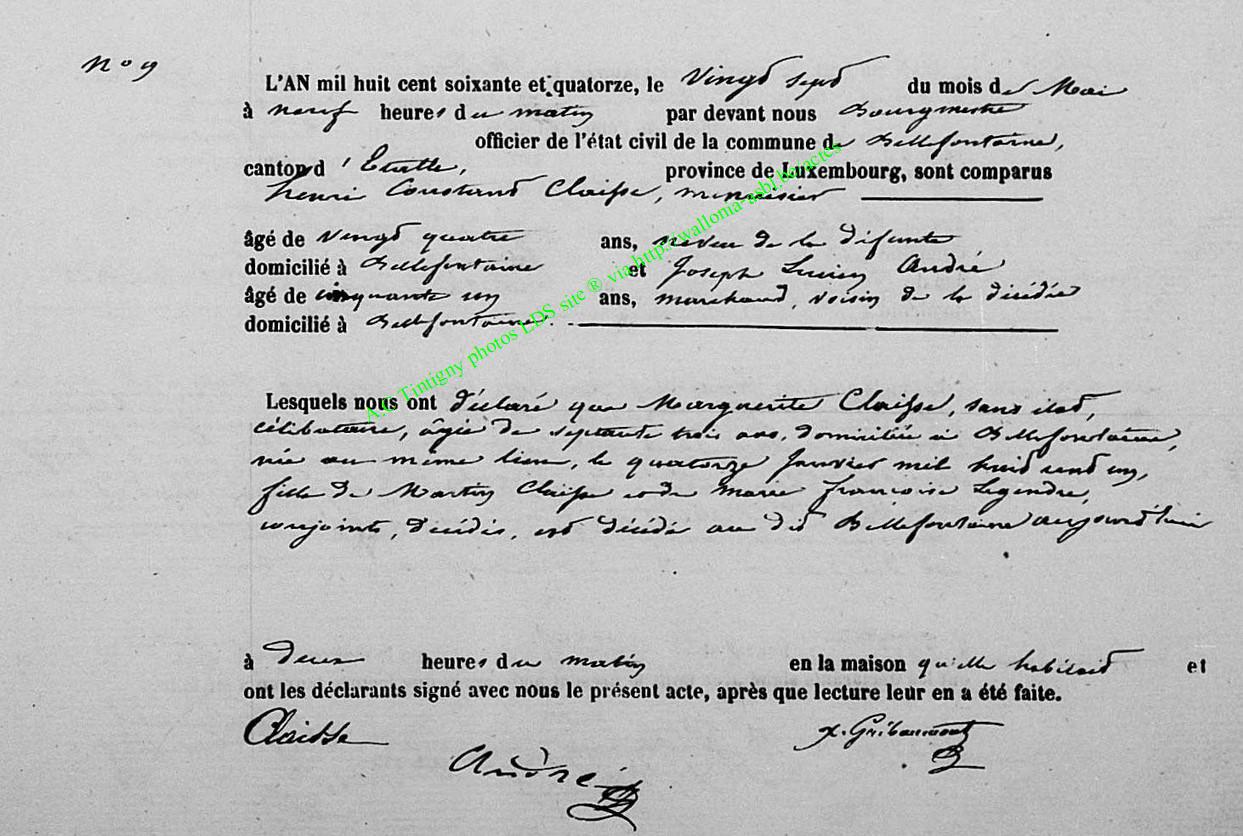 N° 9
L'AN mil huit cent soixante et quatorze, le Vingt sept du mois de Mai
à neuf heures du matin par devant nous Bourgmestre
officier de l'état civil de la commune de Bellefontaine,
canton d'Etalle, province de Luxembourg, sont comparus
henri Constant Claisse, menuisier
âgé de vingt quatre ans, neveu de la défunte
domicilié à Bellefontaine et Joseph Lucien André
âgé de cinquante un ans, marchand, voisin de la décédée
domicilié à Bellefontaine.
Lesquels nous ont déclaré que Marguerite Claisse, sans état,
célibataire, âgée de septante trois ans, domiciliée à Bellefontaine,
née au même lieu, le quatorze Janvier mil huit cent un,
fille de Martin Claisse et de Marie françoise Legendre,
conjoints, décédés, est décédé au dit Bellefontaine aujourd'hui
à deux heures du matin en la maison qu'elle habitait et
ont les déclarants signé avec nous le présent acte, après que lecture leur en a été faite.
Claisse
André
x. Gribaumont
A.C Tintigny photos LDS site ® via http://wallonia-asbl.be/actes